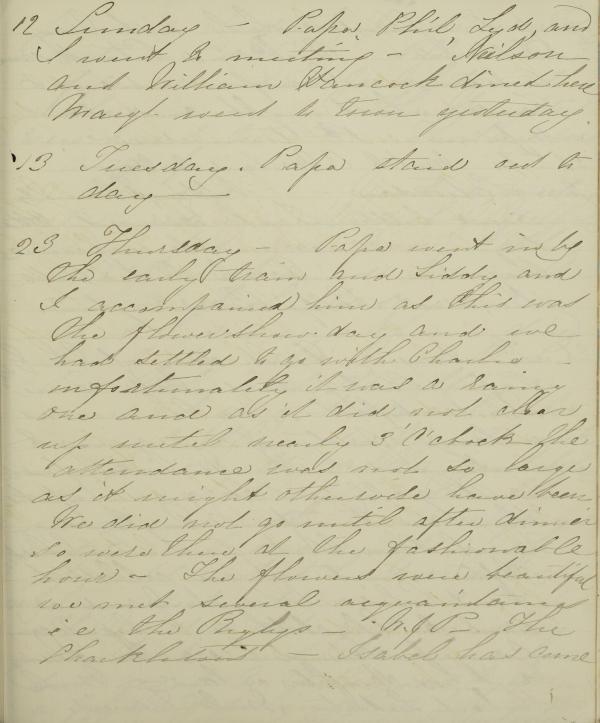 12 Sunday – Papa, Phil, Lyd, and
I went to meeting – Neilson
and William Hancock dined here
Margt. went to town yesterday.
13 Tuesday. Papa staid out to
day —
23 Thursday – Papa went in by
the early train and Liddy and
I accompanied him as this was
the flowershow day and we
had settled to go with Charlie –
unfortunately it was a rainy
one and as it did not clear
up until nearly 3 O'clock the
attendance was not so large
as it might otherwise have been
We did not go until after dinner
so were there at the fashionable
hour – The flowers were beautiful
we met several acquaintances
i e the – The
– Isabel has come